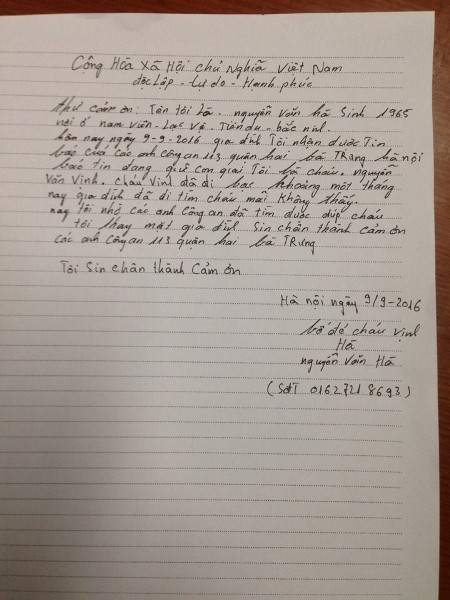 Cộng Hòa Xã Hội chủ Nghĩa Việt Nam
độc Lập - tự do - Hạnh phúc
thư cảm ơn: Tên tôi Là. nguyễn văn hà sinh 1965
nơi ở nam viên - Lạc vệ. Tiên du - bắc ninh.
hôm nay ngày 9-9-2016 gia đình Tôi nhận được Tin
báo của các anh công an 113 quận hai bà TRưng hà nội
báo tin đang giữ con giai Tôi là cháu. nguyễn
Văn Vinh. cháu Vinh đã đi bạc khoảng một tháng
nay gia đình đã đi tìm cháu mãi không thấy.
nay tôi nhờ các anh công an đã tìm được dúp cháu
tôi thay mặt gia đình sin chân thành cảm ơn
các anh công an 113 quận hai bà TRưng
Tôi Sin chân thành cảm ơn
Hà nội ngày 9/9-2016
bố đẻ cháu vinh
Hà
nguyễn văn Hà
(SĐT 01627218693)